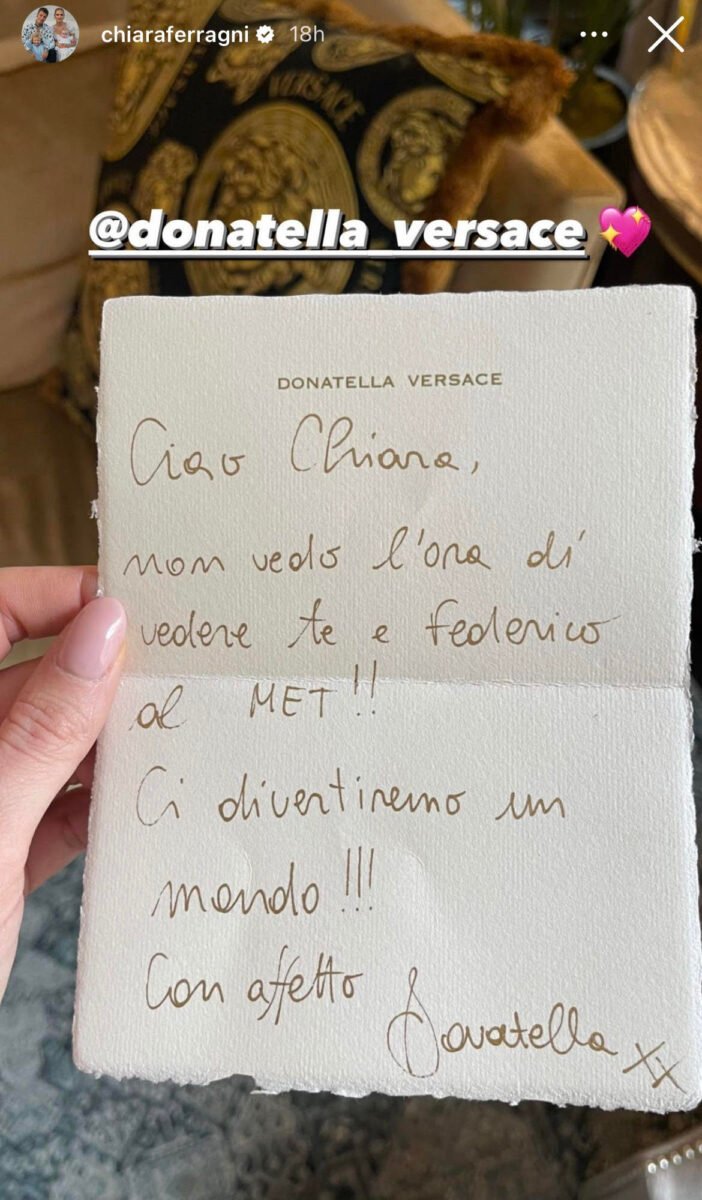 chiaraferragni 18h
VERSACE
@donatella_versace 💖
DONATELLA VERSACE
Ciao Chiara,
non vedo l'ora di
vedere te e Federico
al MET!!
Ci divertiremo un
mondo!!!
Con affetto
Donatella xx